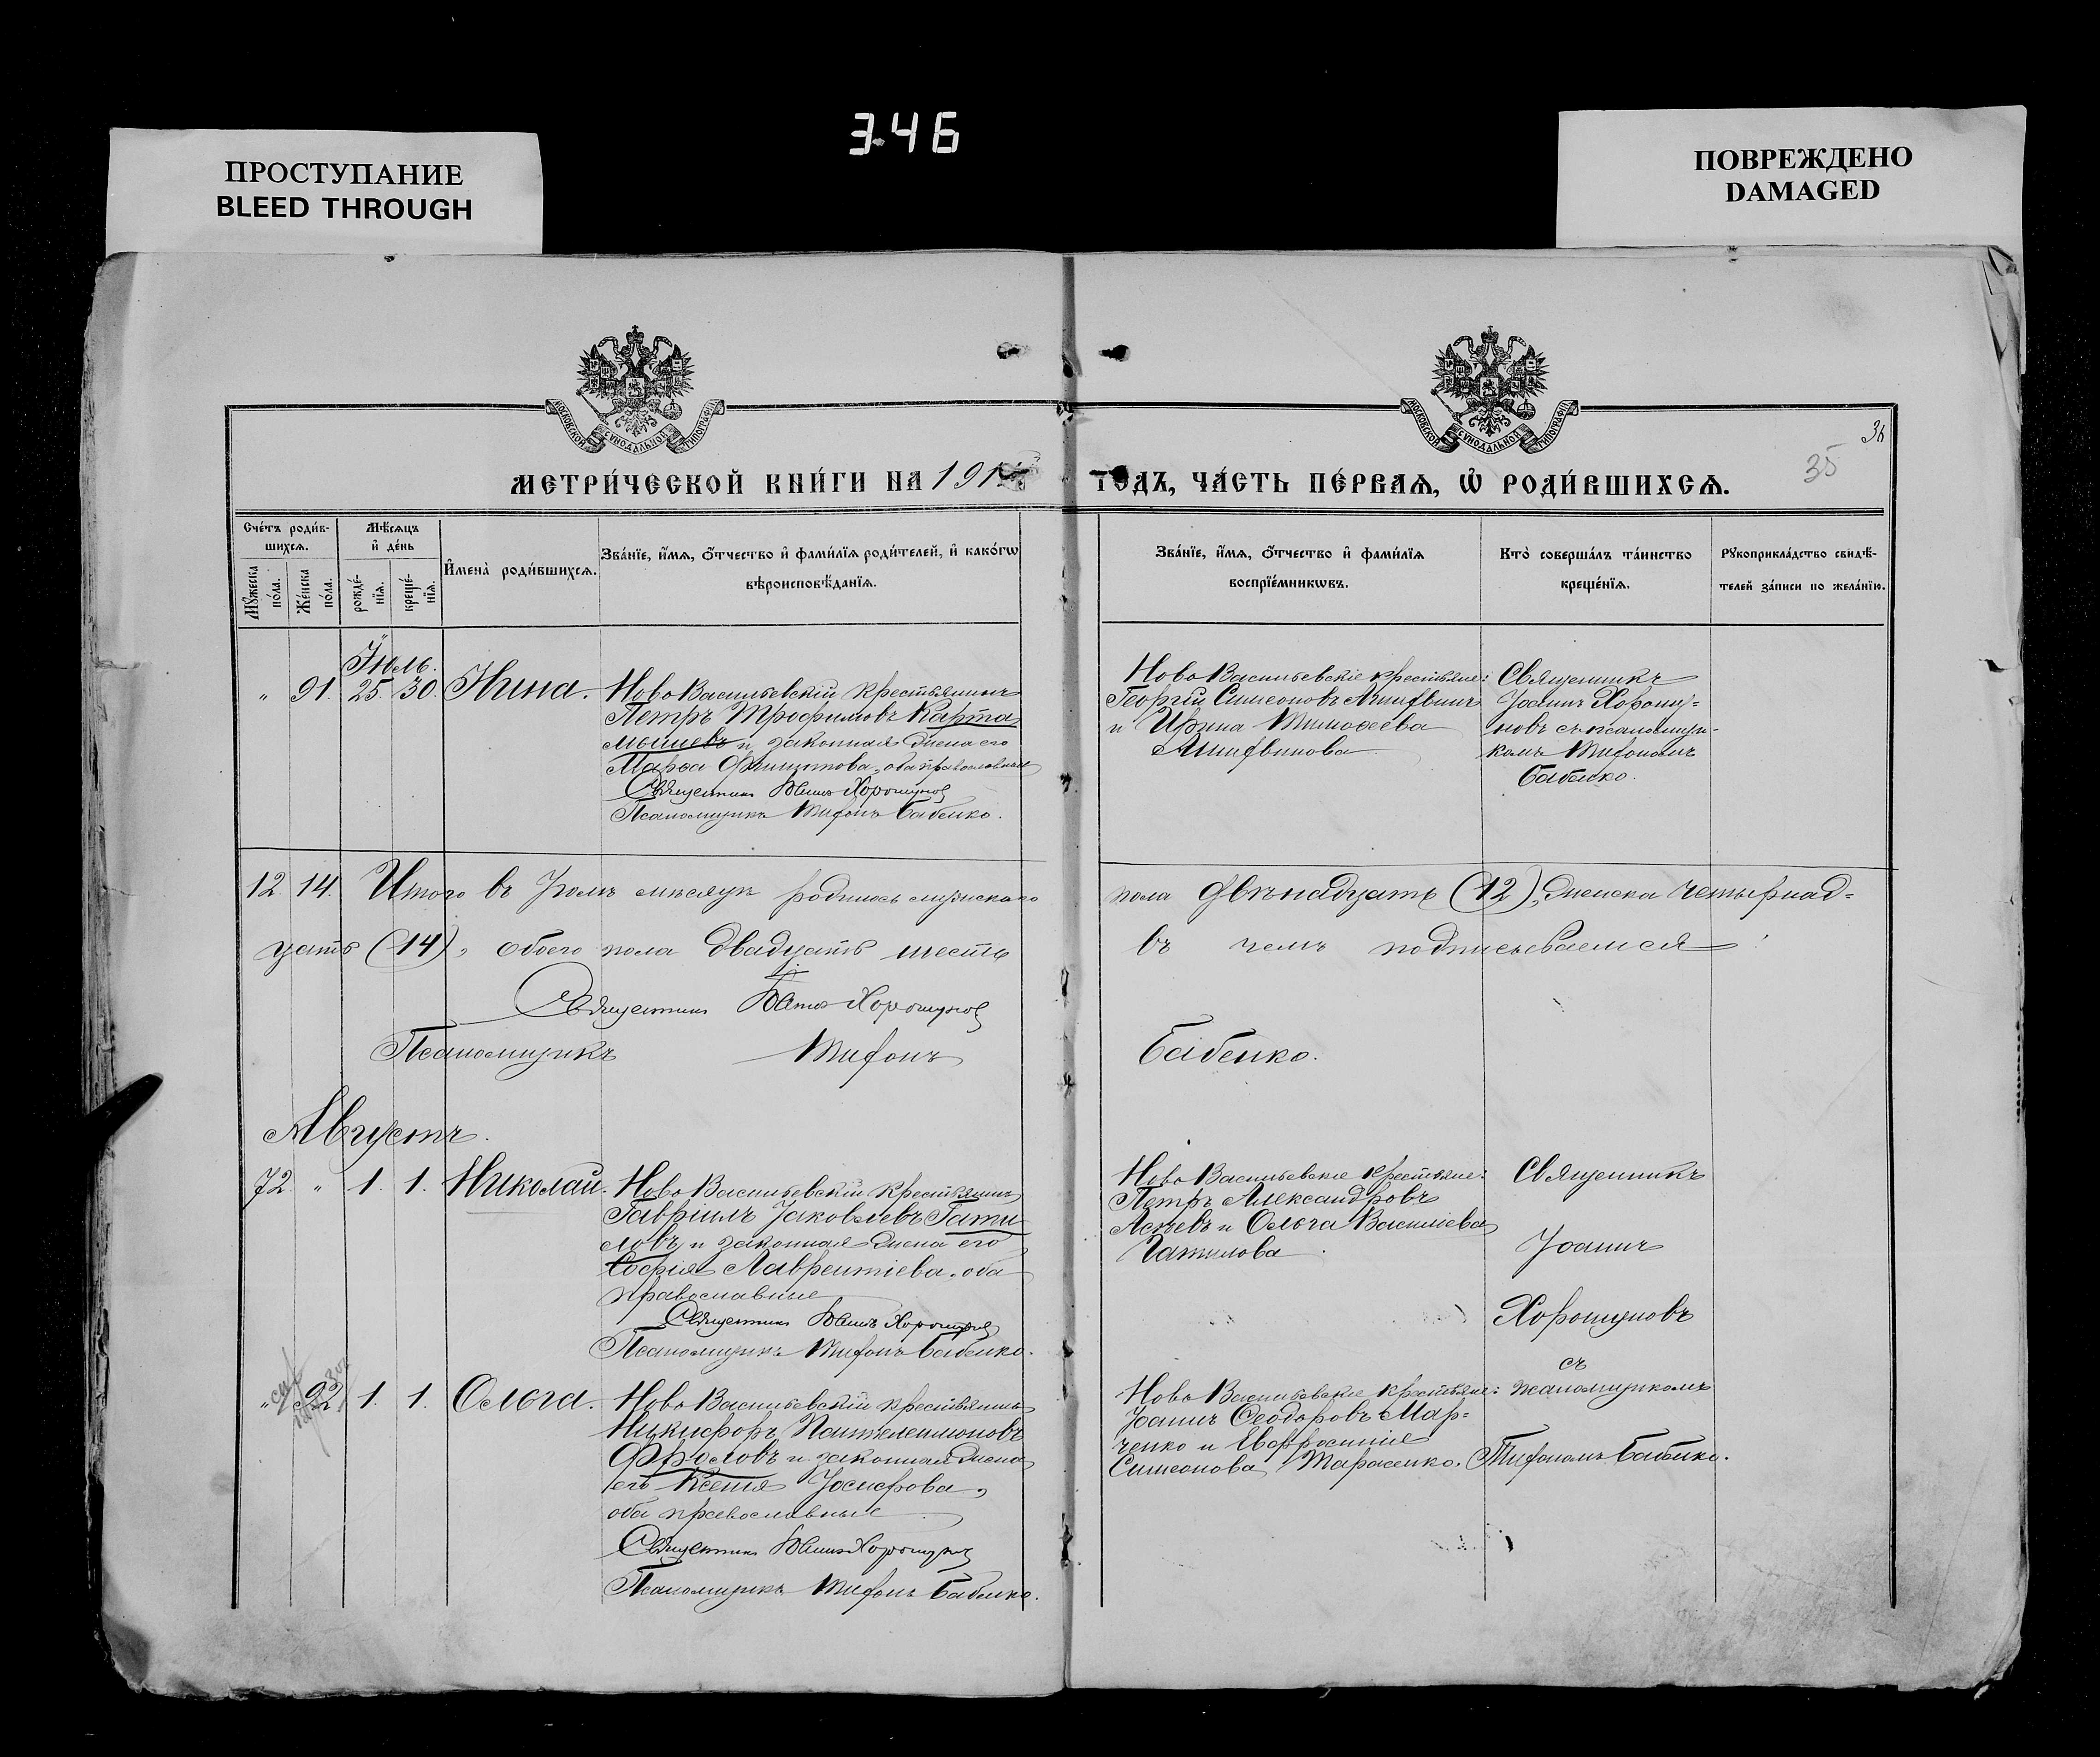 346
ПРОСТУПАНИЕ
BLEED THROUGH
ПОВРЕЖДЕНО
DAMAGED
МОСКОВСКОЙ СѴНОДАЛЬНОЙ ТИПОГРАФІИ
МОСКОВСКОЙ СѴНОДАЛЬНОЙ ТИПОГРАФІИ
36
35
МЕТРИ́ЧЕСКОЙ КНИ́ГИ НА 191
ГОДЪ, ЧА́СТЬ ПЕ́РВАѦ, Ѡ҆ РОДИ́ВШИХСѦ.
Сче́тъ роди́в-
шихсѧ.
Мѣ́сѧцъ
и҆ де́нь
Мꙋ́жеска
по́ла.
Же́нска
по́ла.
рожде́-
нїѧ.
креще́-
нїѧ.
И҆мена̀ роди́вшихсѧ.
Зва́нїе, и҆́мѧ, ѻ҆́тчество и҆ фами́лїѧ роди́телей, и҆ како́гѡ
вѣроисповѣ́данїѧ.
Зва́нїе, и҆́мѧ, ѻ҆́тчество и҆ фами́лїѧ
воспрїе́мникѡвъ.
Кто̀ соверша́лъ та́инство
креще́нїѧ.
Рꙋкоприкла́дство свидѣ́-
телей за́писи по жела́нїю.
Іюль.
" 91. 25. 30. Нина. Ново Васильевскій крестьянинъ
Петръ Трофимовъ Карта
мышевъ и законная жена его
Марѳа Филиппова, оба православные
Священникъ Іоаннъ Хорошуновъ
Псаломщикъ Тифонъ Бабенко.
Ново Васильевскіе крестьяне:
Георгій Симеоновъ
и Ирина Тимоѳеева
Священникъ
Іоаннъ Хорошу=
новъ съ псаломщи-
комъ Тифономъ
Бабенко.
12. 14. Итого въ Іюлѣ мѣсяцѣ родилось мужскаго
пола двѣнадцать (12), женска четырнад=
цать (14), обоего пола двадцать шесть
въ чемъ подписываемся:
Священникъ Іоаннъ Хорошуновъ
Псаломщикъ Тифонъ
Бабенко.
Августъ.
72. " 1. 1. Николай. Ново Васильевскій крестьянинъ
Гавріилъ Іаковлевъ Гати
ловъ и законная жена его
Софія Лаврентіева, оба
православные
Священникъ Іоаннъ Хорошуновъ
Псаломщикъ Тифонъ Бабенко.
Ново Васильевскіе крестьяне:
Петръ Александровъ
и Ольга Василіева
Гатилова.
Священникъ
Іоаннъ
Хорошуновъ
съ
псаломщикомъ
Тифономъ Бабенко.
" 92 1. 1. Ольга. Ново Васильевскій крестьянинъ
Никифоръ Пантелеимоновъ
Фроловъ и законная жена
его Ксенія Іосифова,
оба православные
Священникъ Іоаннъ Хорошуновъ
Псаломщикъ Тифонъ Бабенко.
Ново Васильевскіе крестьяне:
Іоаннъ Ѳеодоровъ Мар=
ченко и Евфросинія
Симеонова Тарасенко.